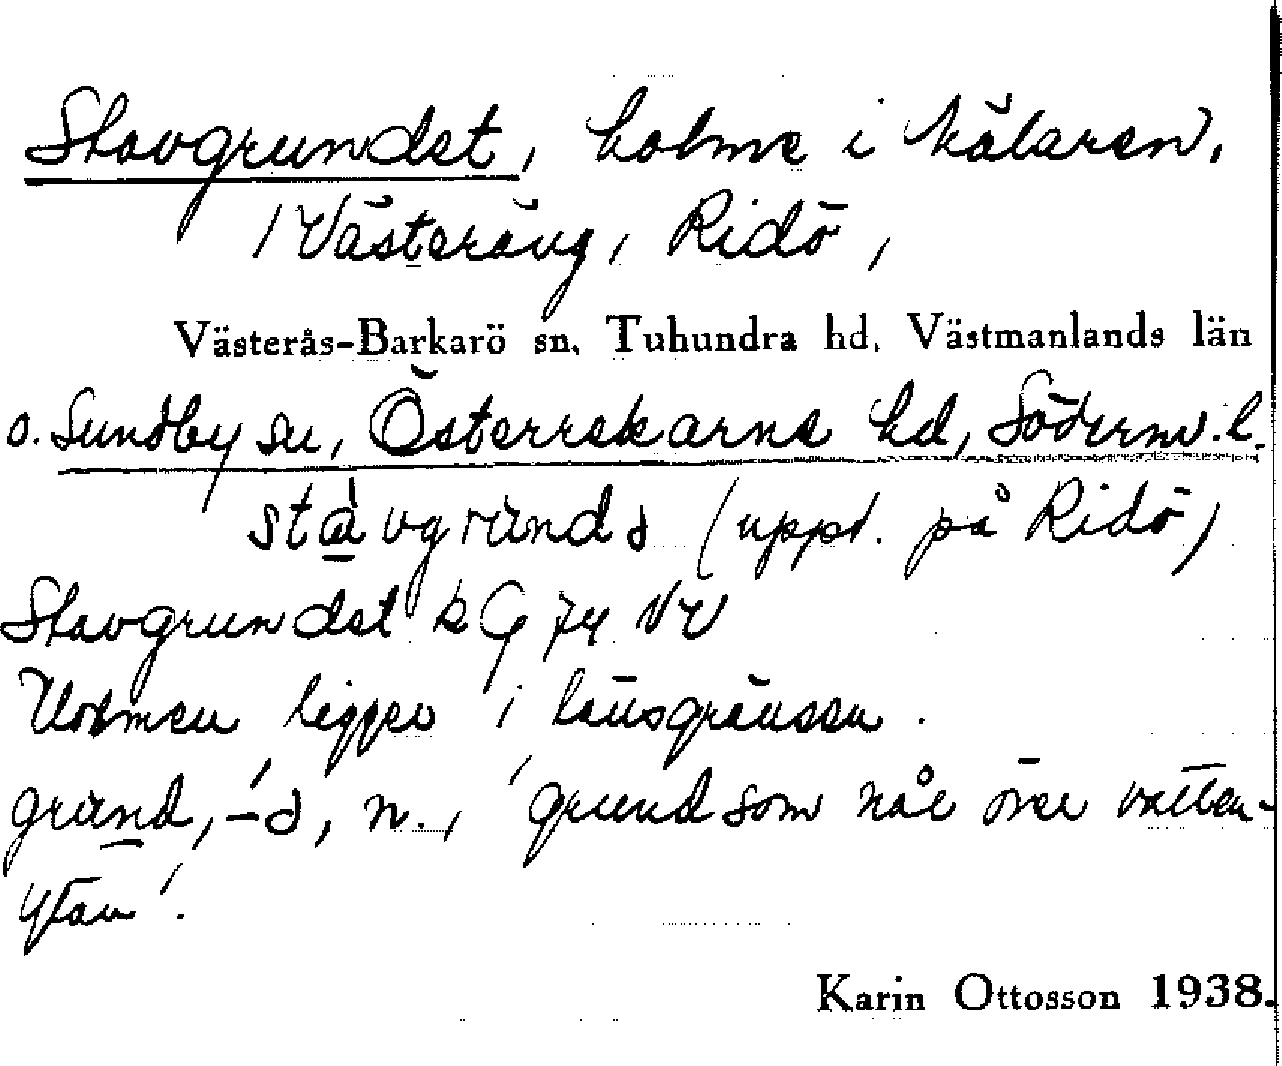 Stavgrundet, holme i Mälaren,
Västeräng, Ridö,
Västerås-Barkarö sn, Tuhundra hd, Västmanlands län
o. Sundby sn, Österrekarne hd, Söderm. l.
(uppt. på Ridö)
Stavgrundet
Holmen ligger i länsgränsen.
grund, n., 'grund som når över vatten-
ytan'.
Karin Ottosson 1938.